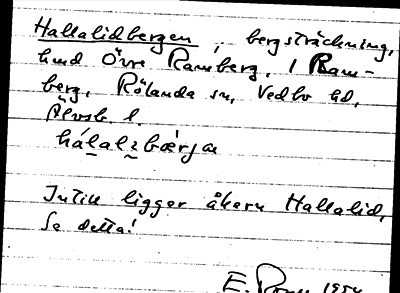 Hallalidbergen, bergsträckning,
hmd Övre Ramberg, 1 Ram-
berg, Rölanda sn, Vedbo hd,
Älvsb. l.
hálalsbærjan
Intill ligger åkern Hallalid,
Se detta!
E. 1954